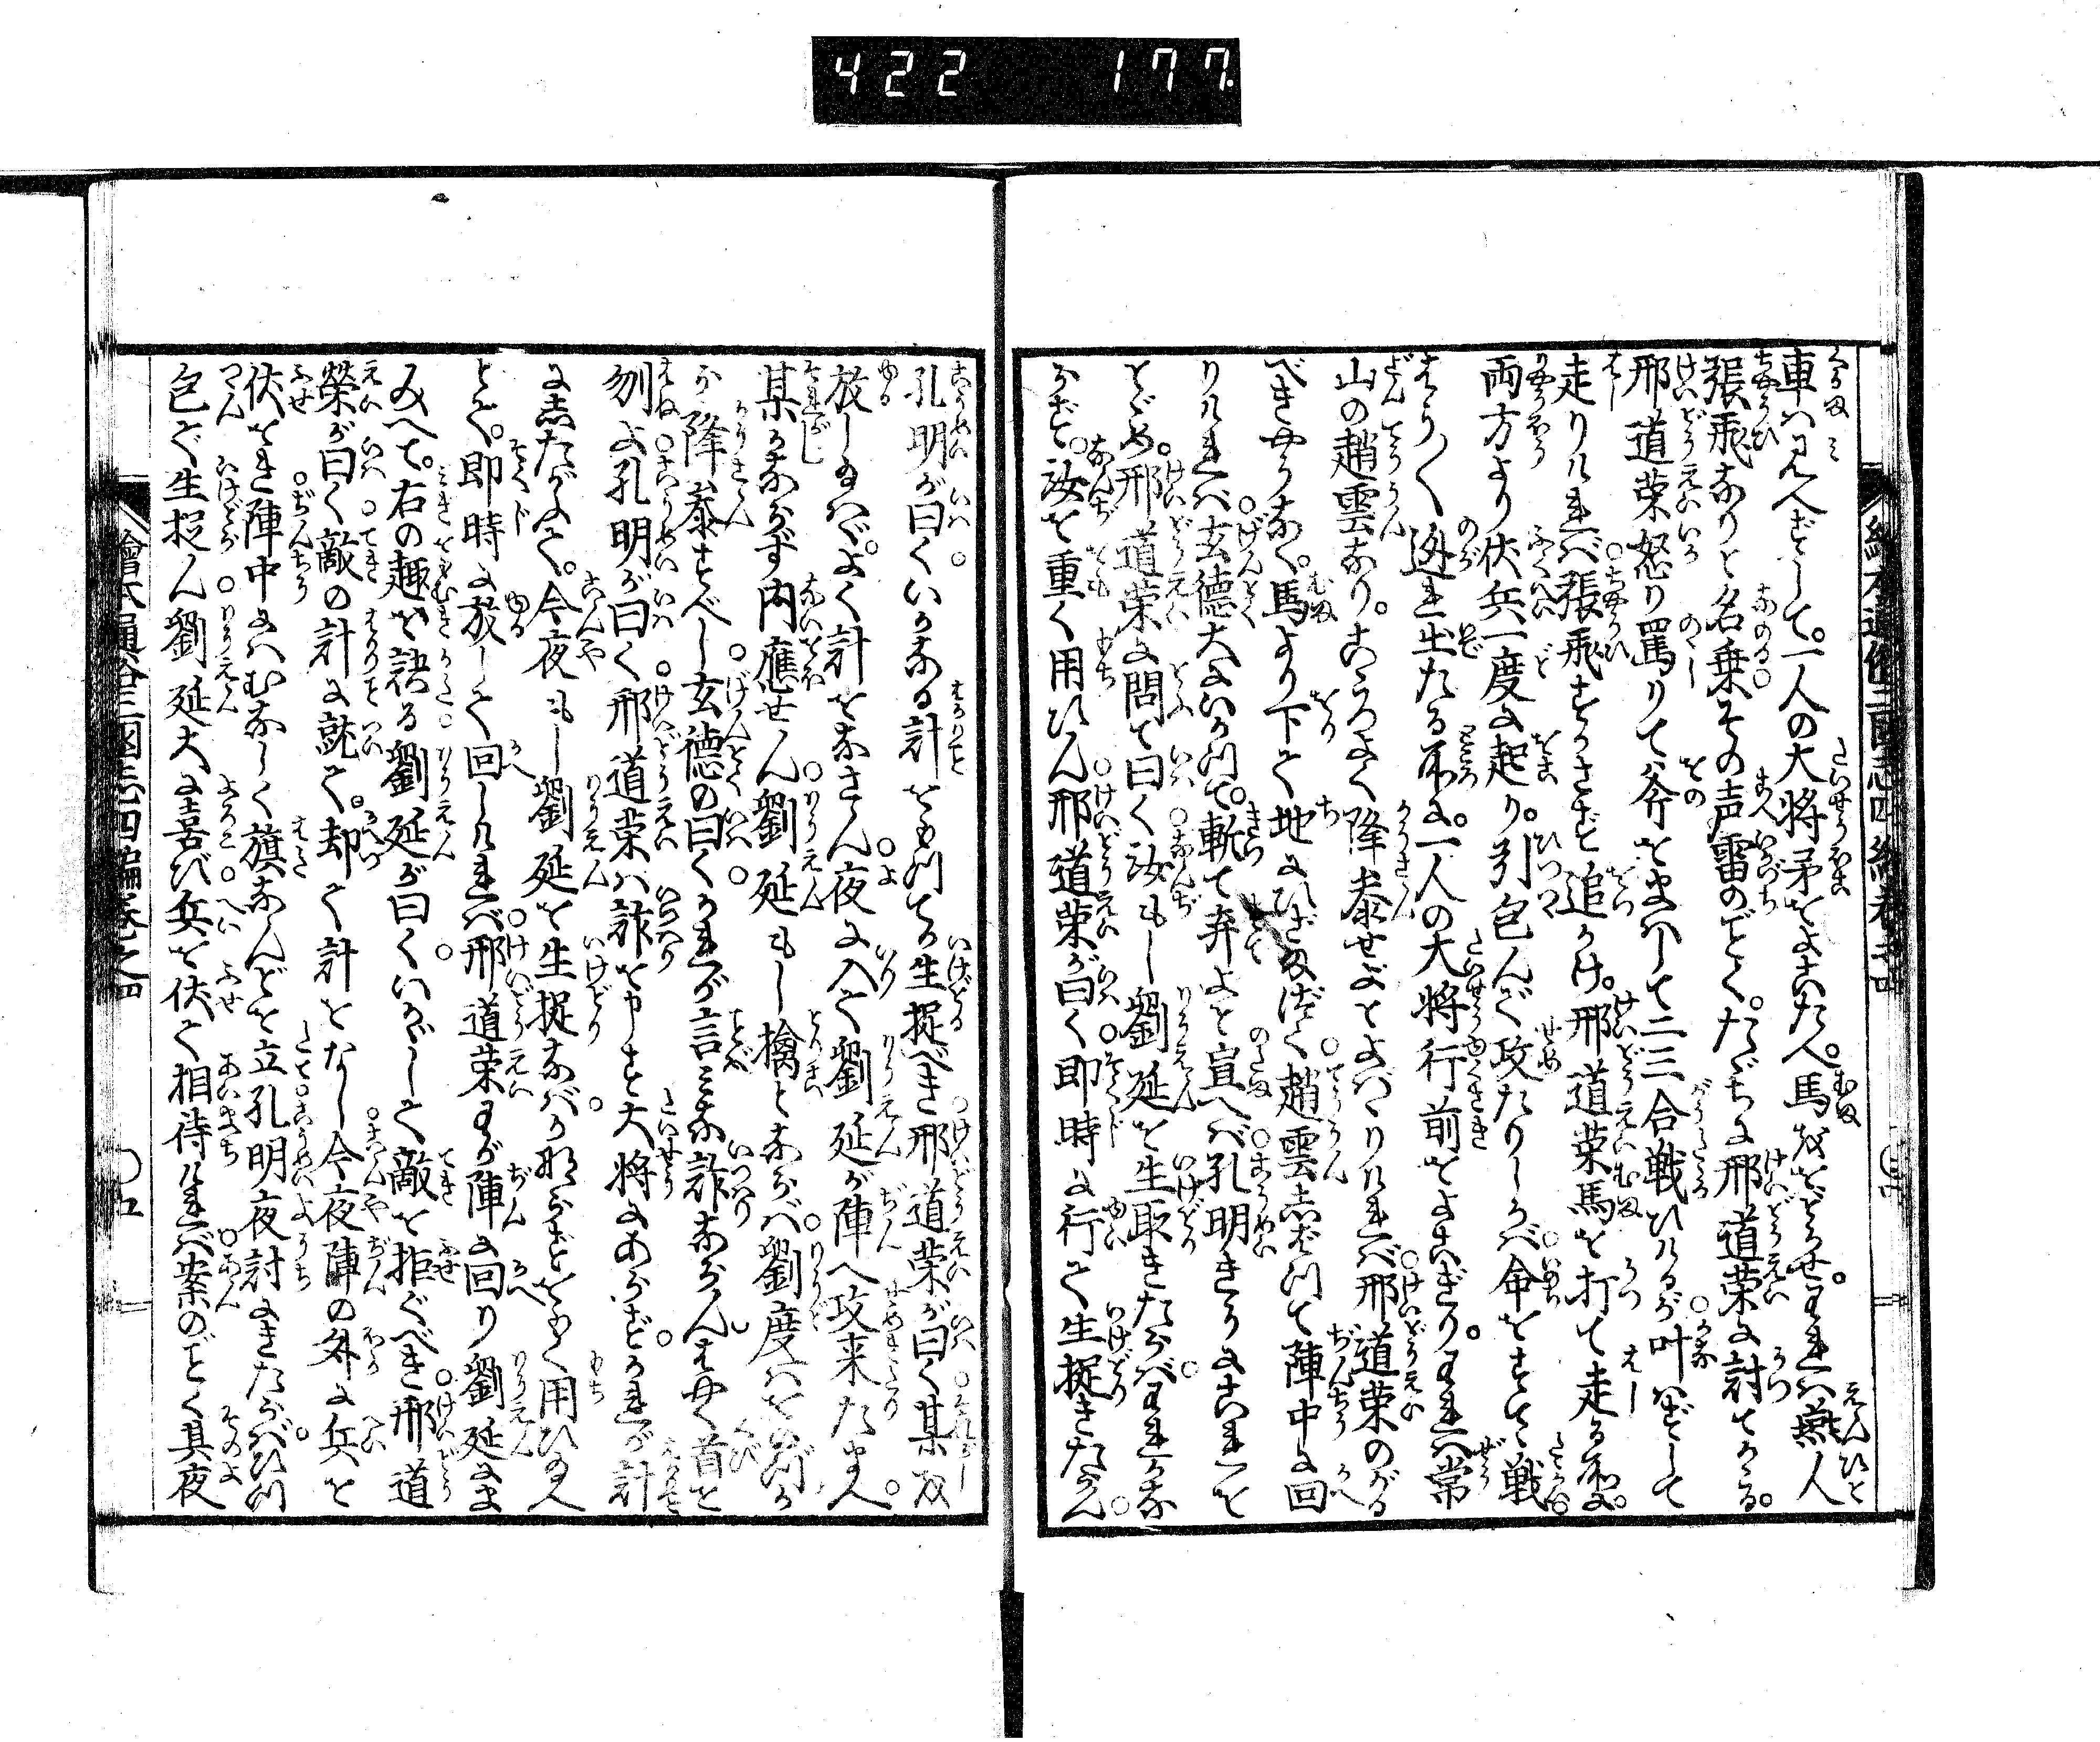 422 177.
車ハ見へずして。一人の大将矛をよこたへ。馬ををどらせ。われハ燕人
張飛なりと名乗その声雷のごとく。たゞちに邢道栄に討てかゝる。
邢道栄怒り罵りて斧をまハして二三合戦ひけるが叶ハずして
走りければ張飛すかさず追かけ。邢道栄馬を打て走る所に。
両方より伏兵一度に起り。引包んで攻たりしかバ命をすてゝ戦
やう〳〵逃れ出たる所に。一人の大将行前をよこぎり。われハ常
山の趙雲なり。こゝろよく降参せよとよバゝりければ邢道栄のがる
べきやうなく。馬より下て地にひざまづく趙雲しバつて陣中に回
りければ玄徳大にいかつて。斬て弃よと宣へバ孔明きうにこれを
とゞめ。邢道栄に問て曰く汝もし劉延を生取きたらバわれかな
らず。汝を重く用ひん邢道栄が曰く即時に行て生捉きたらん
孔明が曰くいかなる計をもつてか生捉べき邢道栄が曰く某を
放し給ハゞ。よく計をなさん夜に入て劉延が陣へ攻来たまへ。
某かならず内應せん劉延もし擒とならバ劉度ハをのづか
ら降参すべし玄徳の曰くかれが言ミな詐ならんはやく首を
刎よ孔明が曰く邢道栄ハ詐を申す大将にあらずかれが計
にしたがふて。今夜もし劉延を生捉なバかならずをもく用ひ給へ
とて。即時に放して回しければ邢道栄わが陣に回り劉延にま
みへて。右の趣を訣る劉延が曰くいかゞして敵を拒ぐべき邢道
榮が曰く敵の計に就て。却て計をなし今夜陣の外に兵を
伏をき陣中にハむなしく旗なんどを立孔明夜討にきたらバひつ
包で生捉ん劉延大に喜び兵を伏て相待ければ案のごとく其夜
繪本通俗三國志四編巻之四